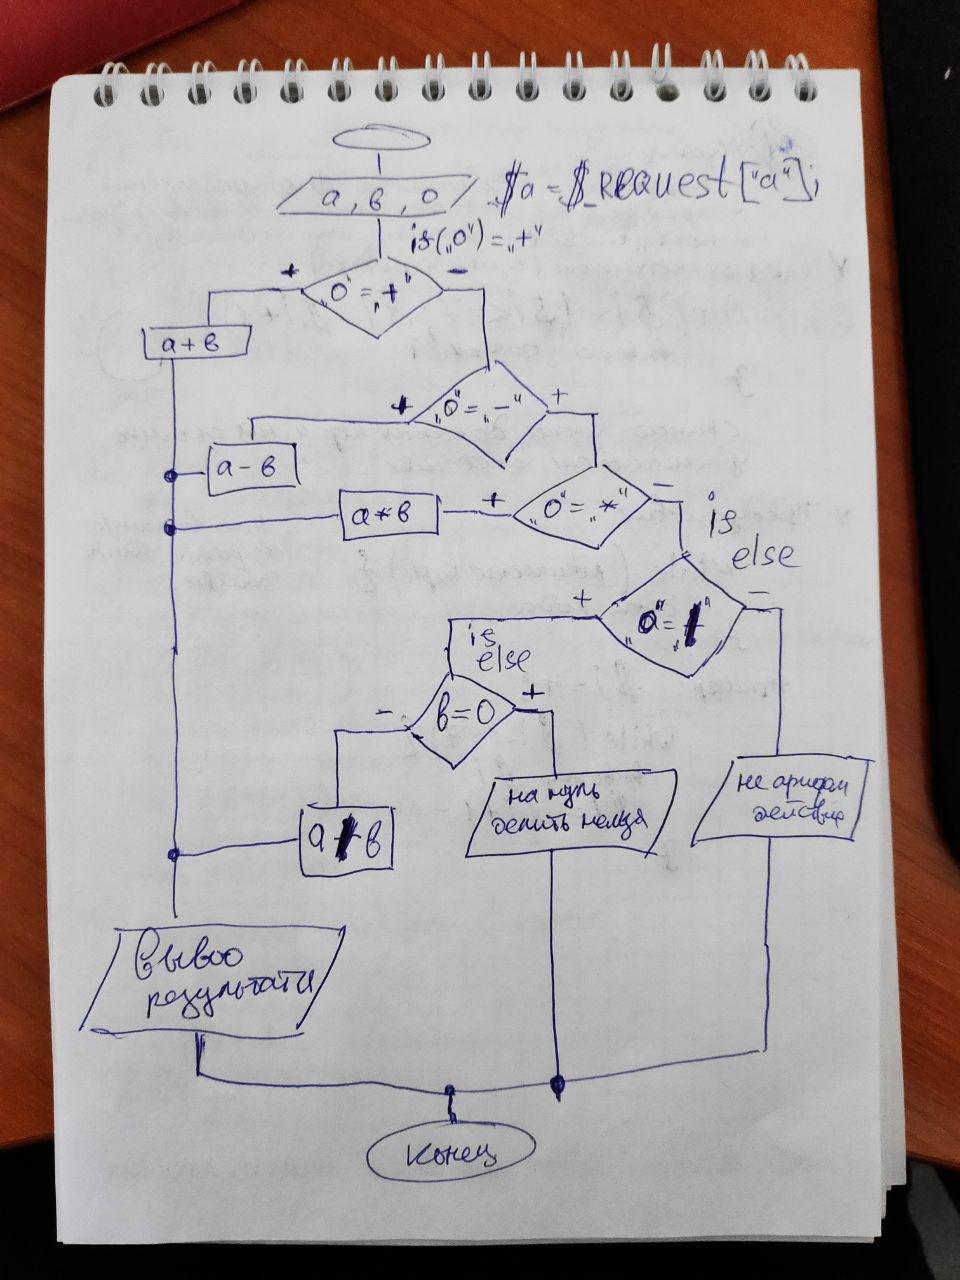 а, в, О
$a = $_REQUEST["a"];
is("О") = "+"
+
„О" = „+"
-
а + в
+
„О" = „-"
+
а - в
а * в
+
„О" = „*"
-
is
else
+
-
is
else
-
в = 0
+
на нуль
делить нельзя
не арифм
действие
Вывод
результата
Конец